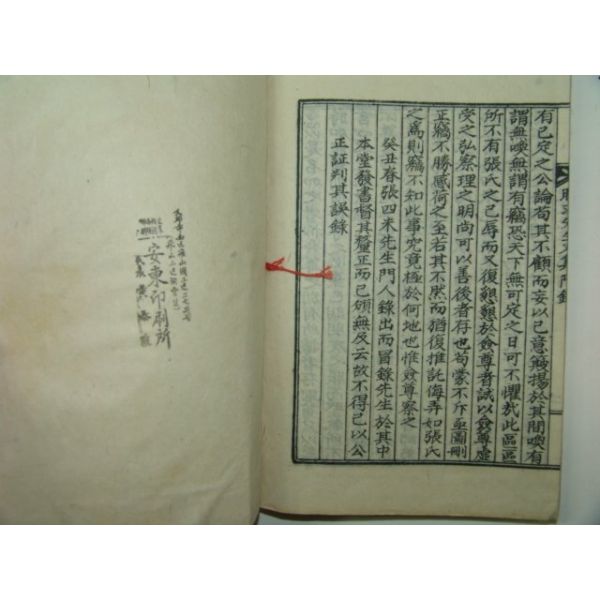 有已定之公論苟其不顧而妄以已意簸揚於其間喚有
謂無喚無謂有竊恐天下無可定之日可不懼哉此區區
所不有張氏之已辱而又復懇懇於僉尊者試以僉尊虛
受之弘察理之明尚可以善後者存也苟蒙不斥亟圖刪
正竊不勝感荷之至若其不然而猶復推託侮弄如張氏
之爲則竊不知此事究竟極於何地也惟僉尊察之
癸丑春張四未先生門人錄出而冒錄先生於其中
本堂發書督其釐正而已頑無反云故不得已以公
正証判其誤錄
安東印刷所